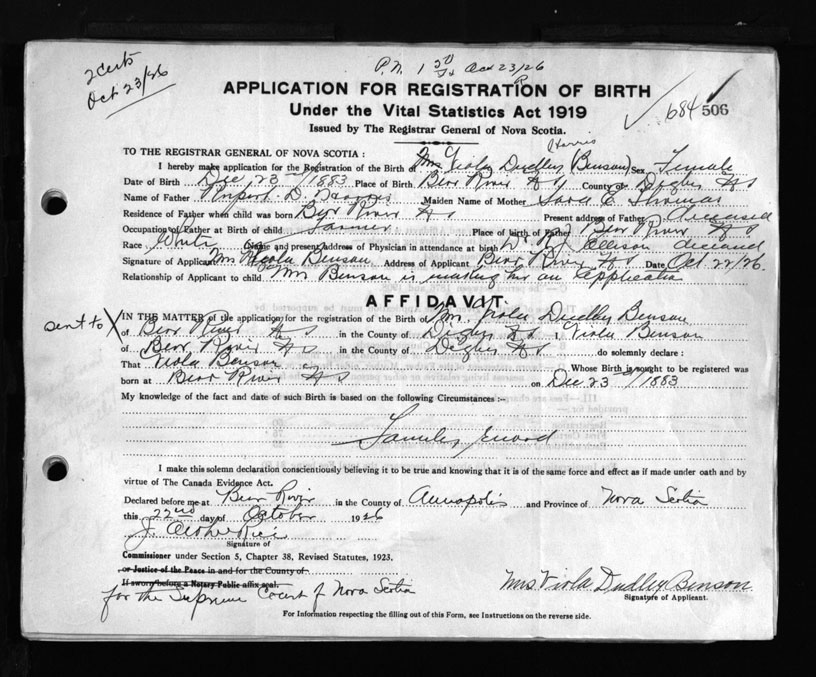 2 Certs
Oct 23/26
P.N. 1 50 Oct 23/26
APPLICATION FOR REGISTRATION OF BIRTH
Under the Vital Statistics Act 1919
Issued by The Registrar General of Nova Scotia.
684 506
Harris
TO THE REGISTRAR GENERAL OF NOVA SCOTIA :
I hereby make application for the Registration of the Birth of Mrs Viola Dudley (Benson) Sex Female
Date of Birth Dec 23rd/1883 Place of Birth Bear River N S County of Digby N S
Name of Father Rupert D. Harris Maiden Name of Mother Sara E. Thomas
Residence of Father when child was born Bear River N S Present address of Father Deceased
Occupation of Father at Birth of child Farmer Place of birth of Father Bear River N S
Race White Name and present address of Physician in attendance at birth Dr. R J Ellison deceased
Signature of Applicant Mrs Viola Benson Address of Applicant Bear River N S Date Oct 22/26
Relationship of Applicant to child Mrs Benson is making her own application
AFFIDAVIT.
sent to X
IN THE MATTER of the application for the registration of the Birth of Mrs. Viola Dudley Benson
of Bear River N S in the County of Digby N S I, Viola Benson
of Bear River N S in the County of Digby N S do solemnly declare :
That Viola Benson Whose Birth is sought to be registered
born at Bear River N S on Dec 23rd/1883
My knowledge of the fact and date of such Birth is based on the following Circumstances :—
Family record
I make this solemn declaration conscientiously believing it to be true and knowing that it is of the same force and effect as if made under oath and by
virtue of The Canada Evidence Act.
Declared before me at Bear River in the County of Annapolis and Province of Nova Scotia
this 22nd day of October 1926
Signature of
Commissioner under Section 5, Chapter 38, Revised Statutes, 1923.
or Justice of the Peace in and for the County of
If sworn before a Notary Public affix seal.
for the Supreme Court of Nova Scotia
Mrs Viola Dudley Benson
Signature of Applicant.
For Information respecting the filling out of this Form, see Instructions on the reverse side.